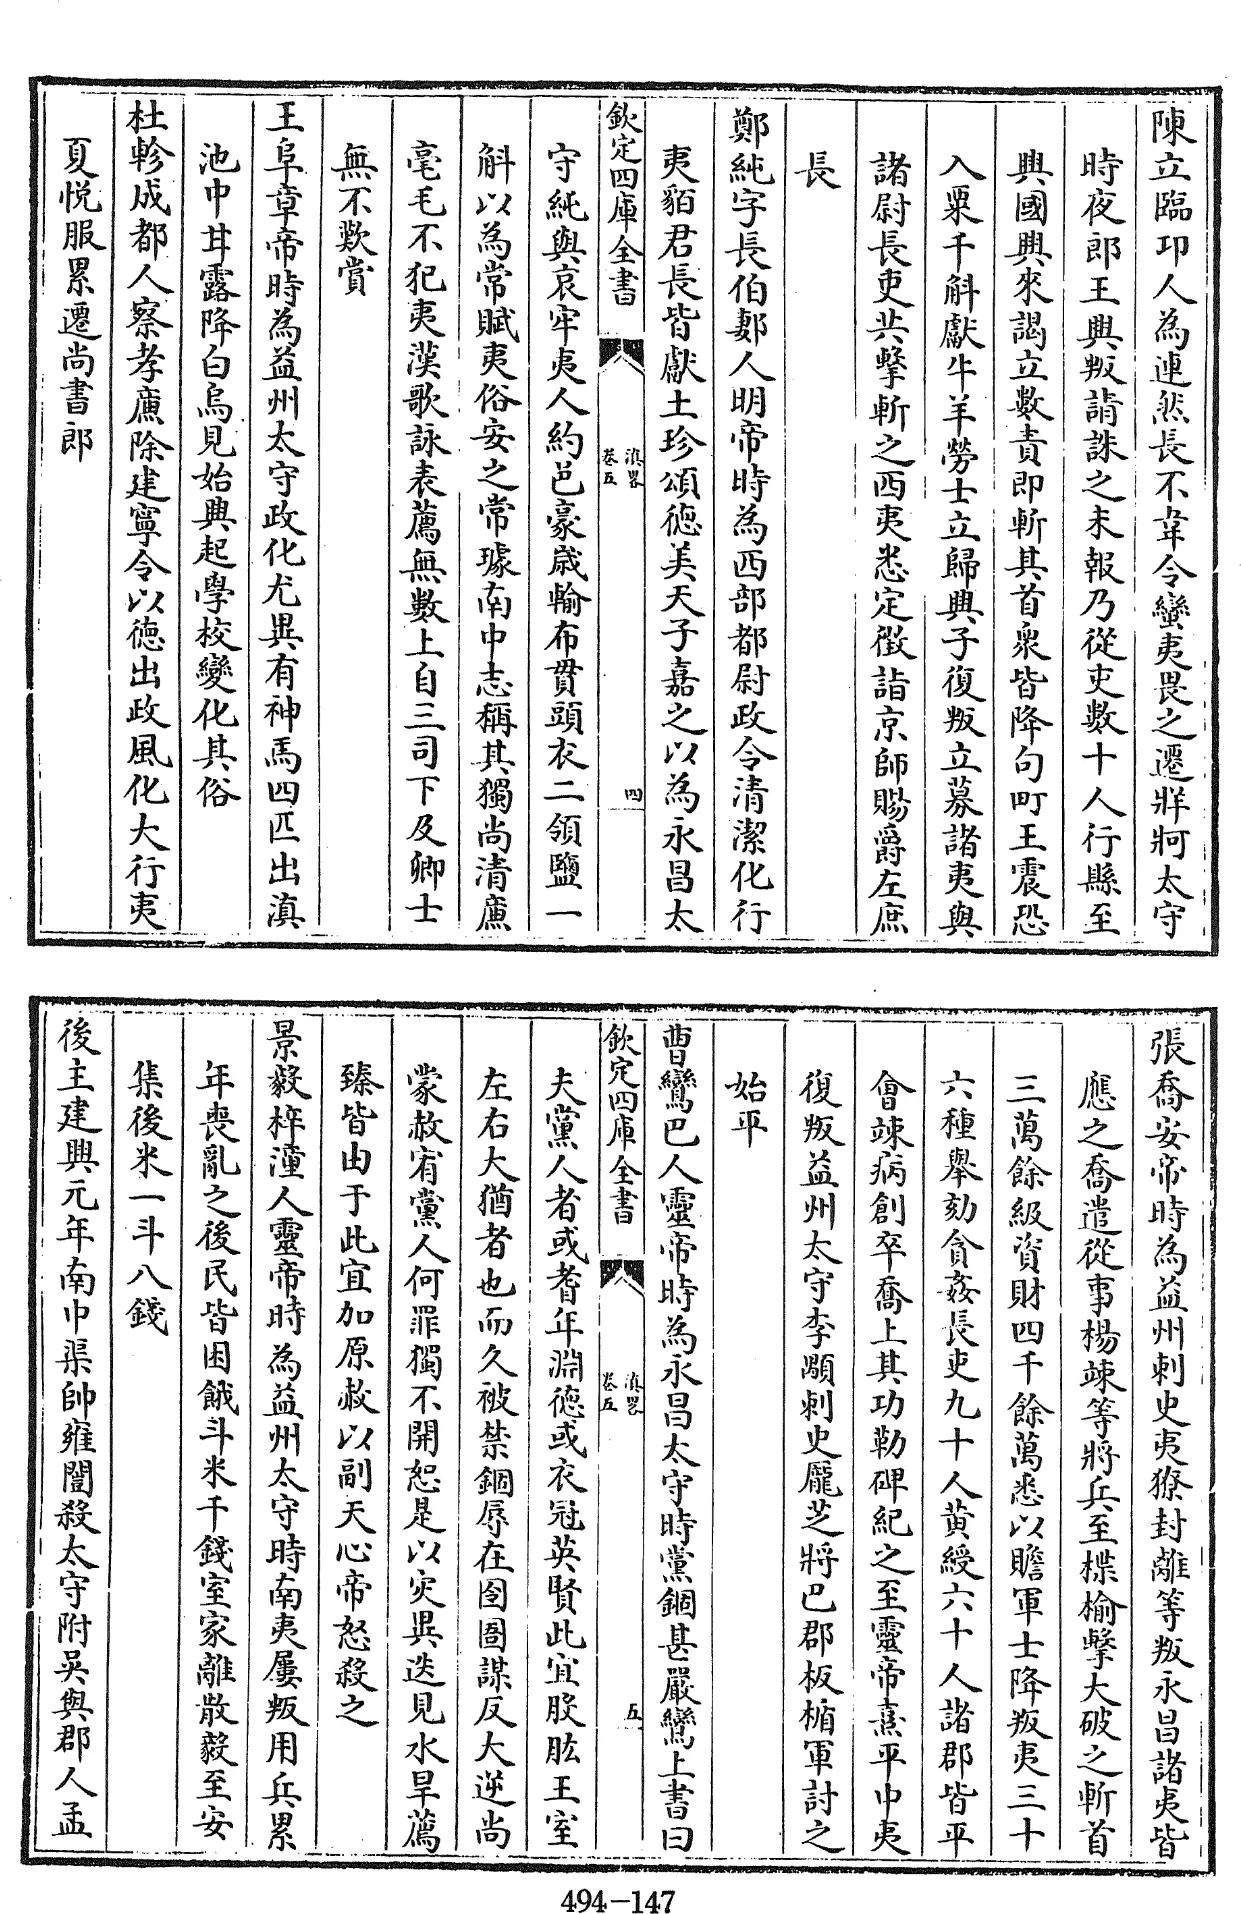 陳立臨邛人為連然長不韋令蠻夷畏之遷牂牁太守
時夜郎王興叛請誅之未報乃從吏數十人行縣至
興國興來謁立數責即斬其首衆皆降句町王震恐
入粟千斛獻牛羊勞士立歸興子復叛立募諸夷與
諸尉長吏共擊斬之西夷悉定徴詣京師賜爵左庶
長
鄭純字長伯郪人明帝時為西部都尉政令清潔化行
夷貊君長皆獻土珍頌德美天子嘉之以為永昌太
欽定四庫全書
滇畧
卷五
四
守純與哀牢夷人約邑豪歳輸布貫頭衣二領鹽一
斛以為常賦夷俗安之常璩南中志稱其獨尚清亷
毫毛不犯夷漢歌詠表薦無數上自三司下及卿士
無不歎賞
王阜章帝時為益州太守政化尤異有神馬四匹出滇
池中甘露降白烏見始興起學校變化其俗
杜軫成都人察孝亷除建寧令以德出政風化大行夷
夏悦服累遷尚書郎
張喬安帝時為益州刺史夷獠封離等叛永昌諸夷皆
應之喬遣從事楊竦等將兵至楪榆擊大破之斬首
三萬餘級資財四千餘萬悉以贍軍士降叛夷三十
六種舉劾貪姦長吏九十人黄綬六十人諸郡皆平
會竦病創卒喬上其功勒碑紀之至靈帝熹平中夷
復叛益州太守李顒刺史龎芝將巴郡板楯軍討之
始平
曹鸞巴人靈帝時為永昌太守時黨錮甚嚴鸞上書曰
欽定四庫全書
滇畧
卷五
五
夫黨人者或耆年淵德或衣冠英賢此宜股肱王室
左右大猶者也而久被禁錮辱在囹圄謀反大逆尚
蒙赦宥黨人何罪獨不開恕是以灾異迭見水旱薦
臻皆由于此宜加原赦以副天心帝怒殺之
景毅梓潼人靈帝時為益州太守時南夷屢叛用兵累
年喪亂之後民皆困餓斗米千錢室家離散毅至安
集後米一斗八錢
後主建興元年南中渠帥雍闓殺太守附吳與郡人孟
494-147